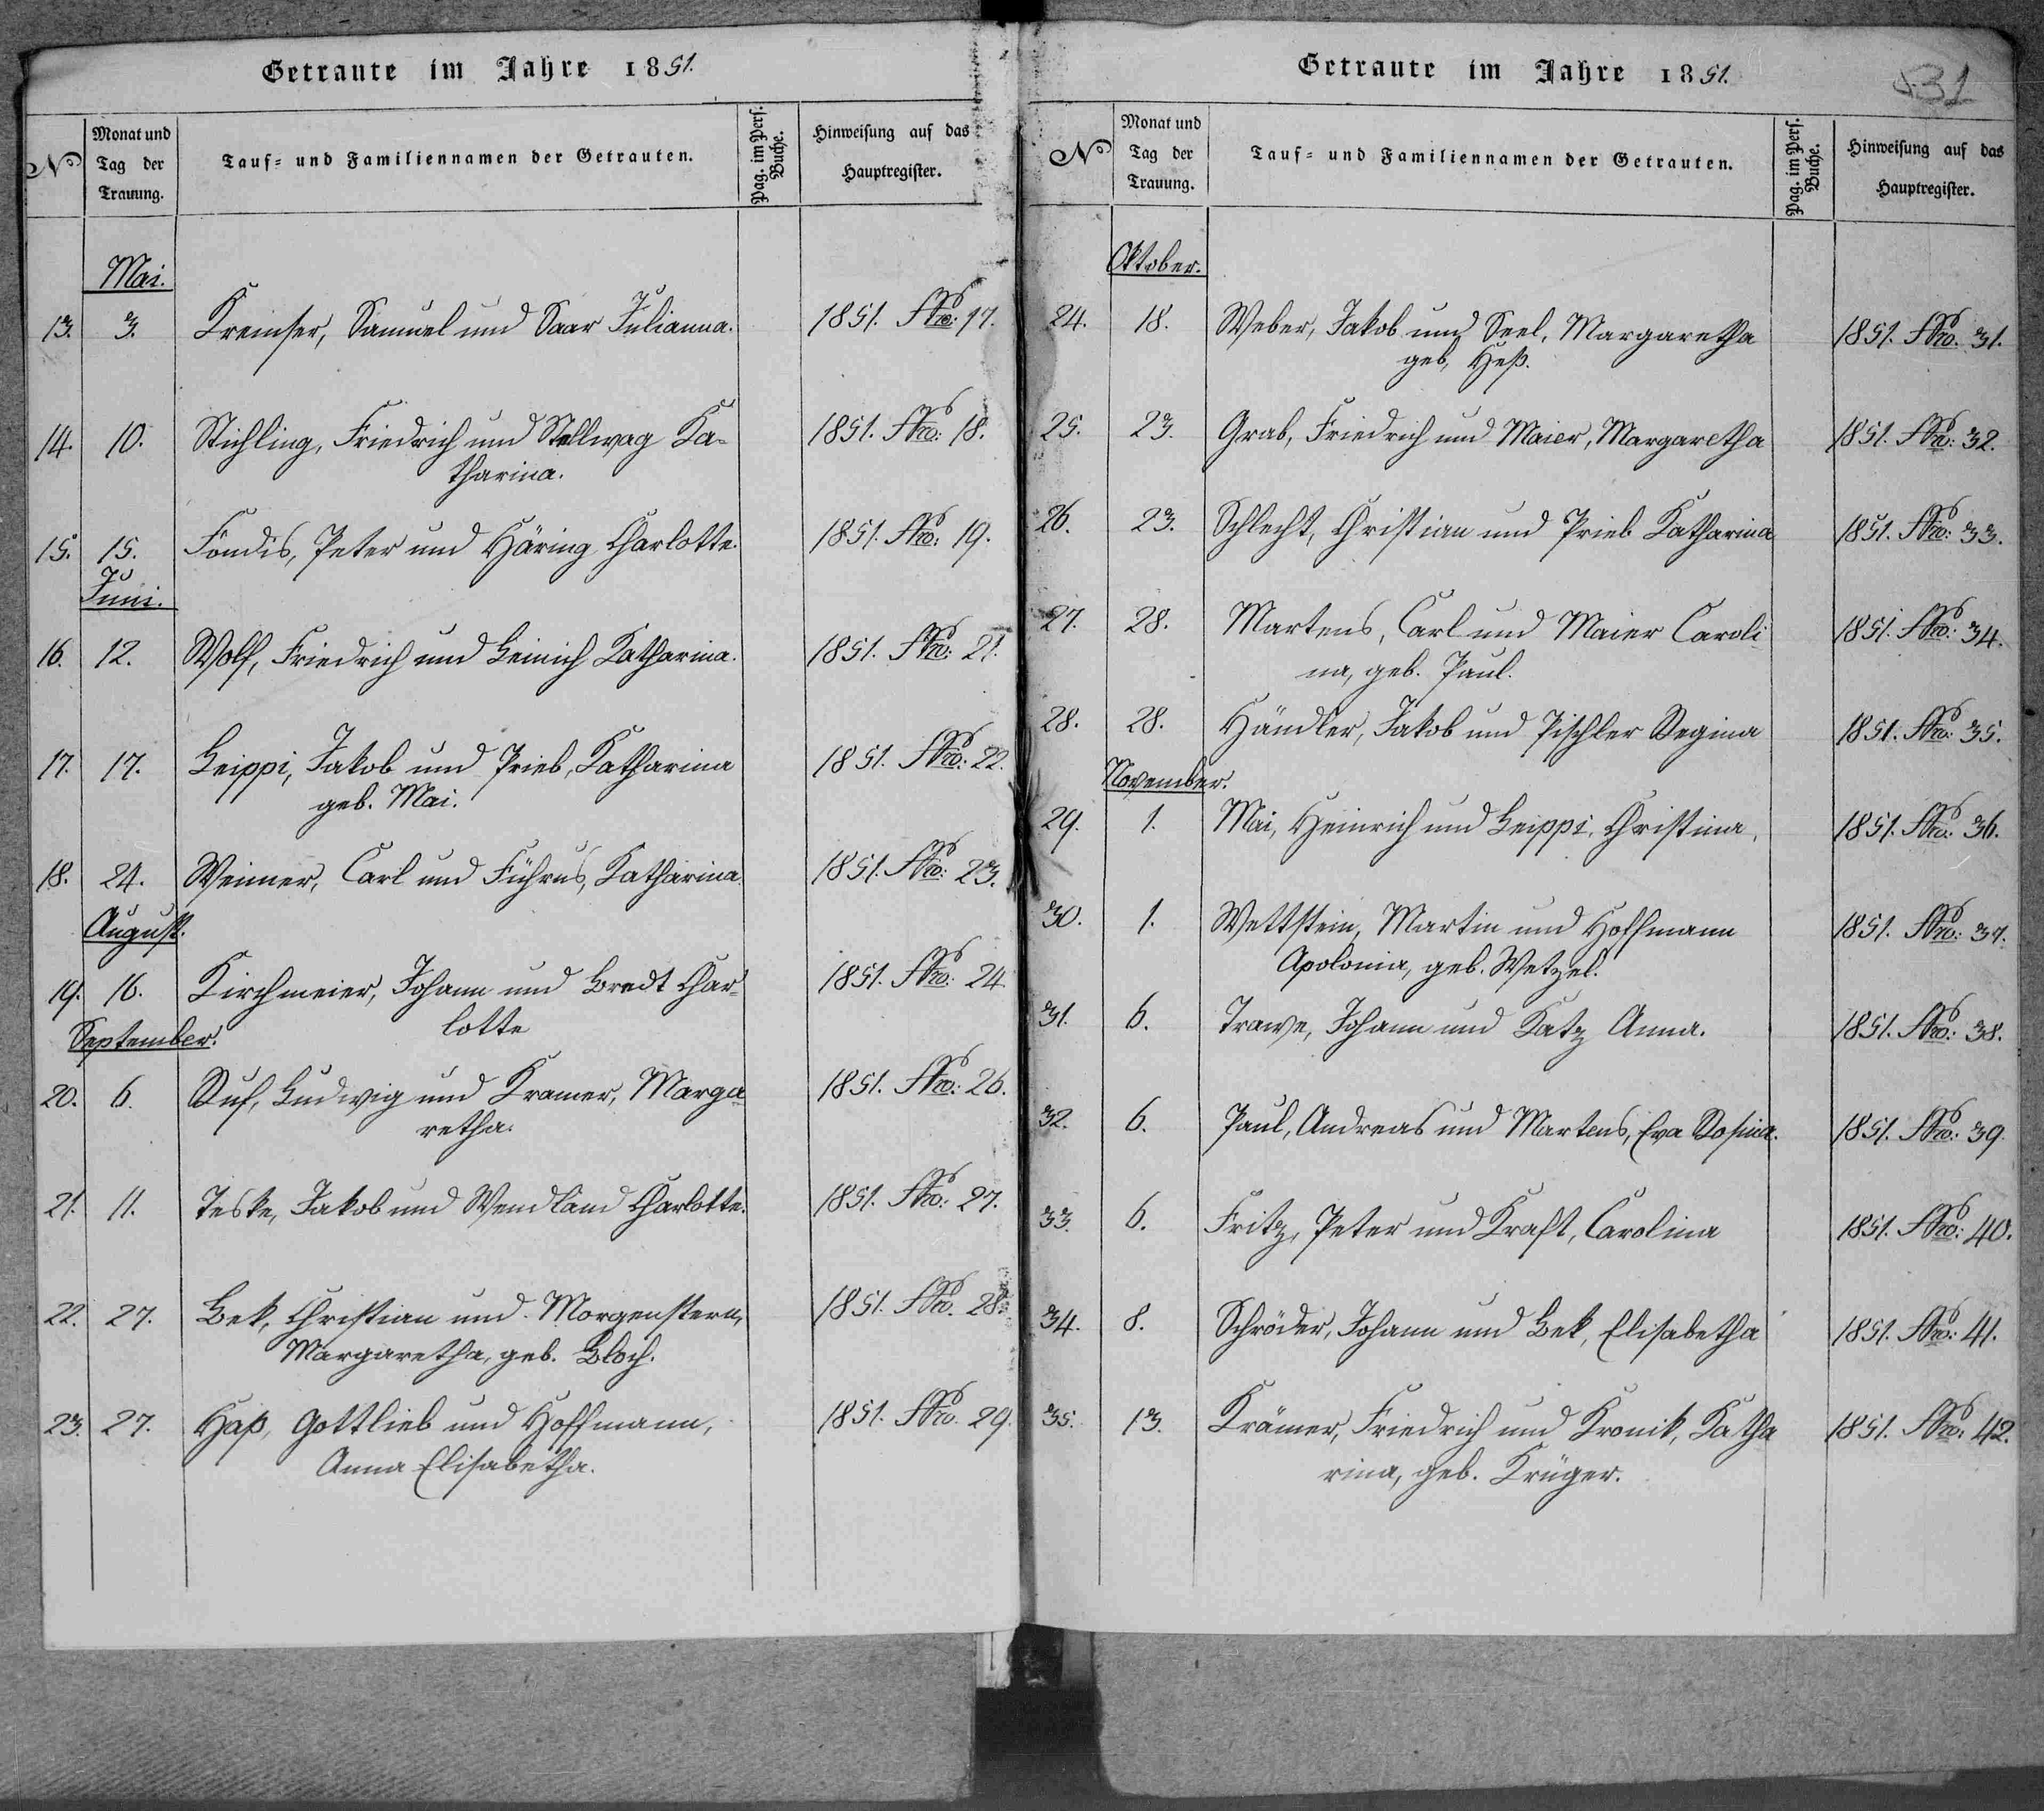 Getraute im Jahre 1851.
No Monat und Tag der Trauung. Tauf- und Familiennamen der Getrauten. Pag. im Pers. Buche. Hinweisung auf das Hauptregister.
Mai.
13. 3. Kremser, Samuel und Saar Julianna. 1851. Nro: 17.
14. 10. Stichling, Friedrich und Stellwag Ka-
tharina. 1851. Nro: 18.
15. 15. Fondis, Peter und Häring Charlotte. 1851. Nro: 19.
Juni.
16. 12. Wolf, Friedrich und Heinrich Katharina. 1851. Nro: 21.
17. 17. Leippi, Jakob und Prieb, Katharina 1851. Nro: 22.
geb. Mai.
18. 24. Weimer, Carl und Führus, Katharina. 1851. Nro: 23.
August.
19. 16. Kirchmeier, Johann und Bredt Char- 1851. Nro: 24.
lotte
September.
20. 6. Ruf, Ludwig und Kramer, Marga- 1851. Nro: 26.
retha.
21. 11. Teske, Jakob und Wendland Charlotte. 1851. Nro: 27.
22. 27. Bek, Christian und Morgenstern, 1851. Nro. 28.
Margaretha, geb. Bloch.
23. 27. Haß, Gottlieb und Hoffmann, 1851. Nro. 29.
Anna Elisabetha.
Getraute im Jahre 1851.
31
No Monat und Tag der Trauung. Tauf- und Familiennamen der Getrauten. Pag. im Pers. Buche. Hinweisung auf das Hauptregister.
Oktober.
24. 18. Weber, Jakob und Seel, Margaretha 1851. Nro. 31.
geb. Heß.
25. 23. Grab, Friedrich und Maier, Margaretha 1851. Nro: 32.
26. 23. Schlecht, Christian und Prieb Katharina 1851. Nro: 33.
27. 28. Martens, Carl und Maier Caroli- 1851. Nro: 34.
na, geb. Paul.
28. 28. Händler, Jakob und Pischler Regina 1851. Nro: 35.
November.
29. 1. Mai, Heinrich und Leippi, Christina. 1851. Nro: 36.
30. 1. Wettstein, Martin und Hoffmann 1851. Nro: 37.
Apolonia, geb. Wetzel.
31. 6. Trawe, Johann und Katz Anna. 1851. Nro: 38.
32. 6. Paul, Andreas und Martens, Eva Rosina. 1851. Nro: 39.
33. 6. Fritz, Peter und Kraft, Carolina 1851. Nro: 40.
34. 8. Schröder, Johann und Bek, Elisabetha 1851. Nro: 41.
35. 13. Krämer, Friedrich und Kronik, Katha 1851. Nro: 42.
rina, geb. Krüger.